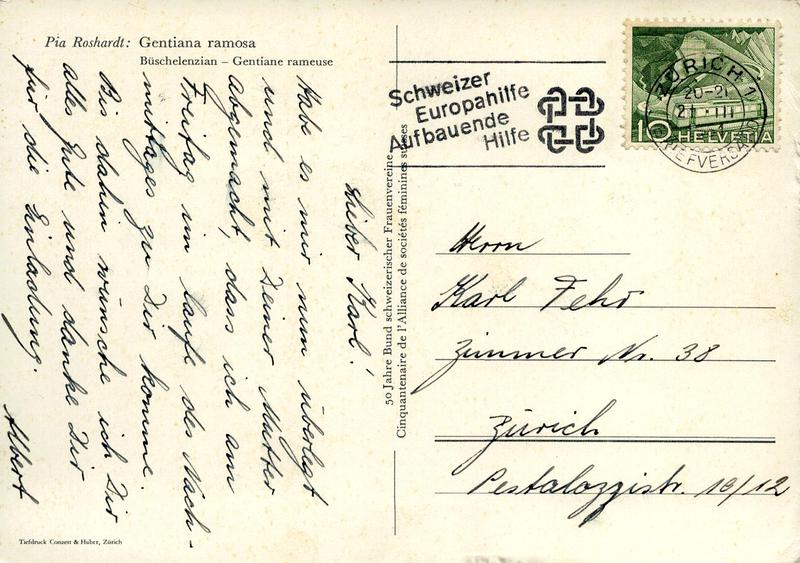 Pia Roshardt: Gentiana ramosa
Büschelenzian – Gentiane rameuse
Lieber Karl!
Habe es mir nun überlegt
und mit Deiner Mutter
abgemacht, dass ich am
Freitag im Laufe des Nach-
mittages zu Dir komme.
Bis dahin wünsche ich Dir
alles Gute und danke Dir
für die Einladung.
Albert
Tiefdruck Conzett & Huber, Zürich
50 Jahre Bund schweizerischer Frauenvereine
Cinquantenaire de l'Alliance de sociétés féminines suisses
Schweizer
Europahilfe
Aufbauende
Hilfe
ZÜRICH 1
20-21
21. III
BRIEFVERSAND
10 HELVETIA
Herrn
Karl Fehr
Zimmer Nr. 38
Zürich
Pestalozzistr. 10/12